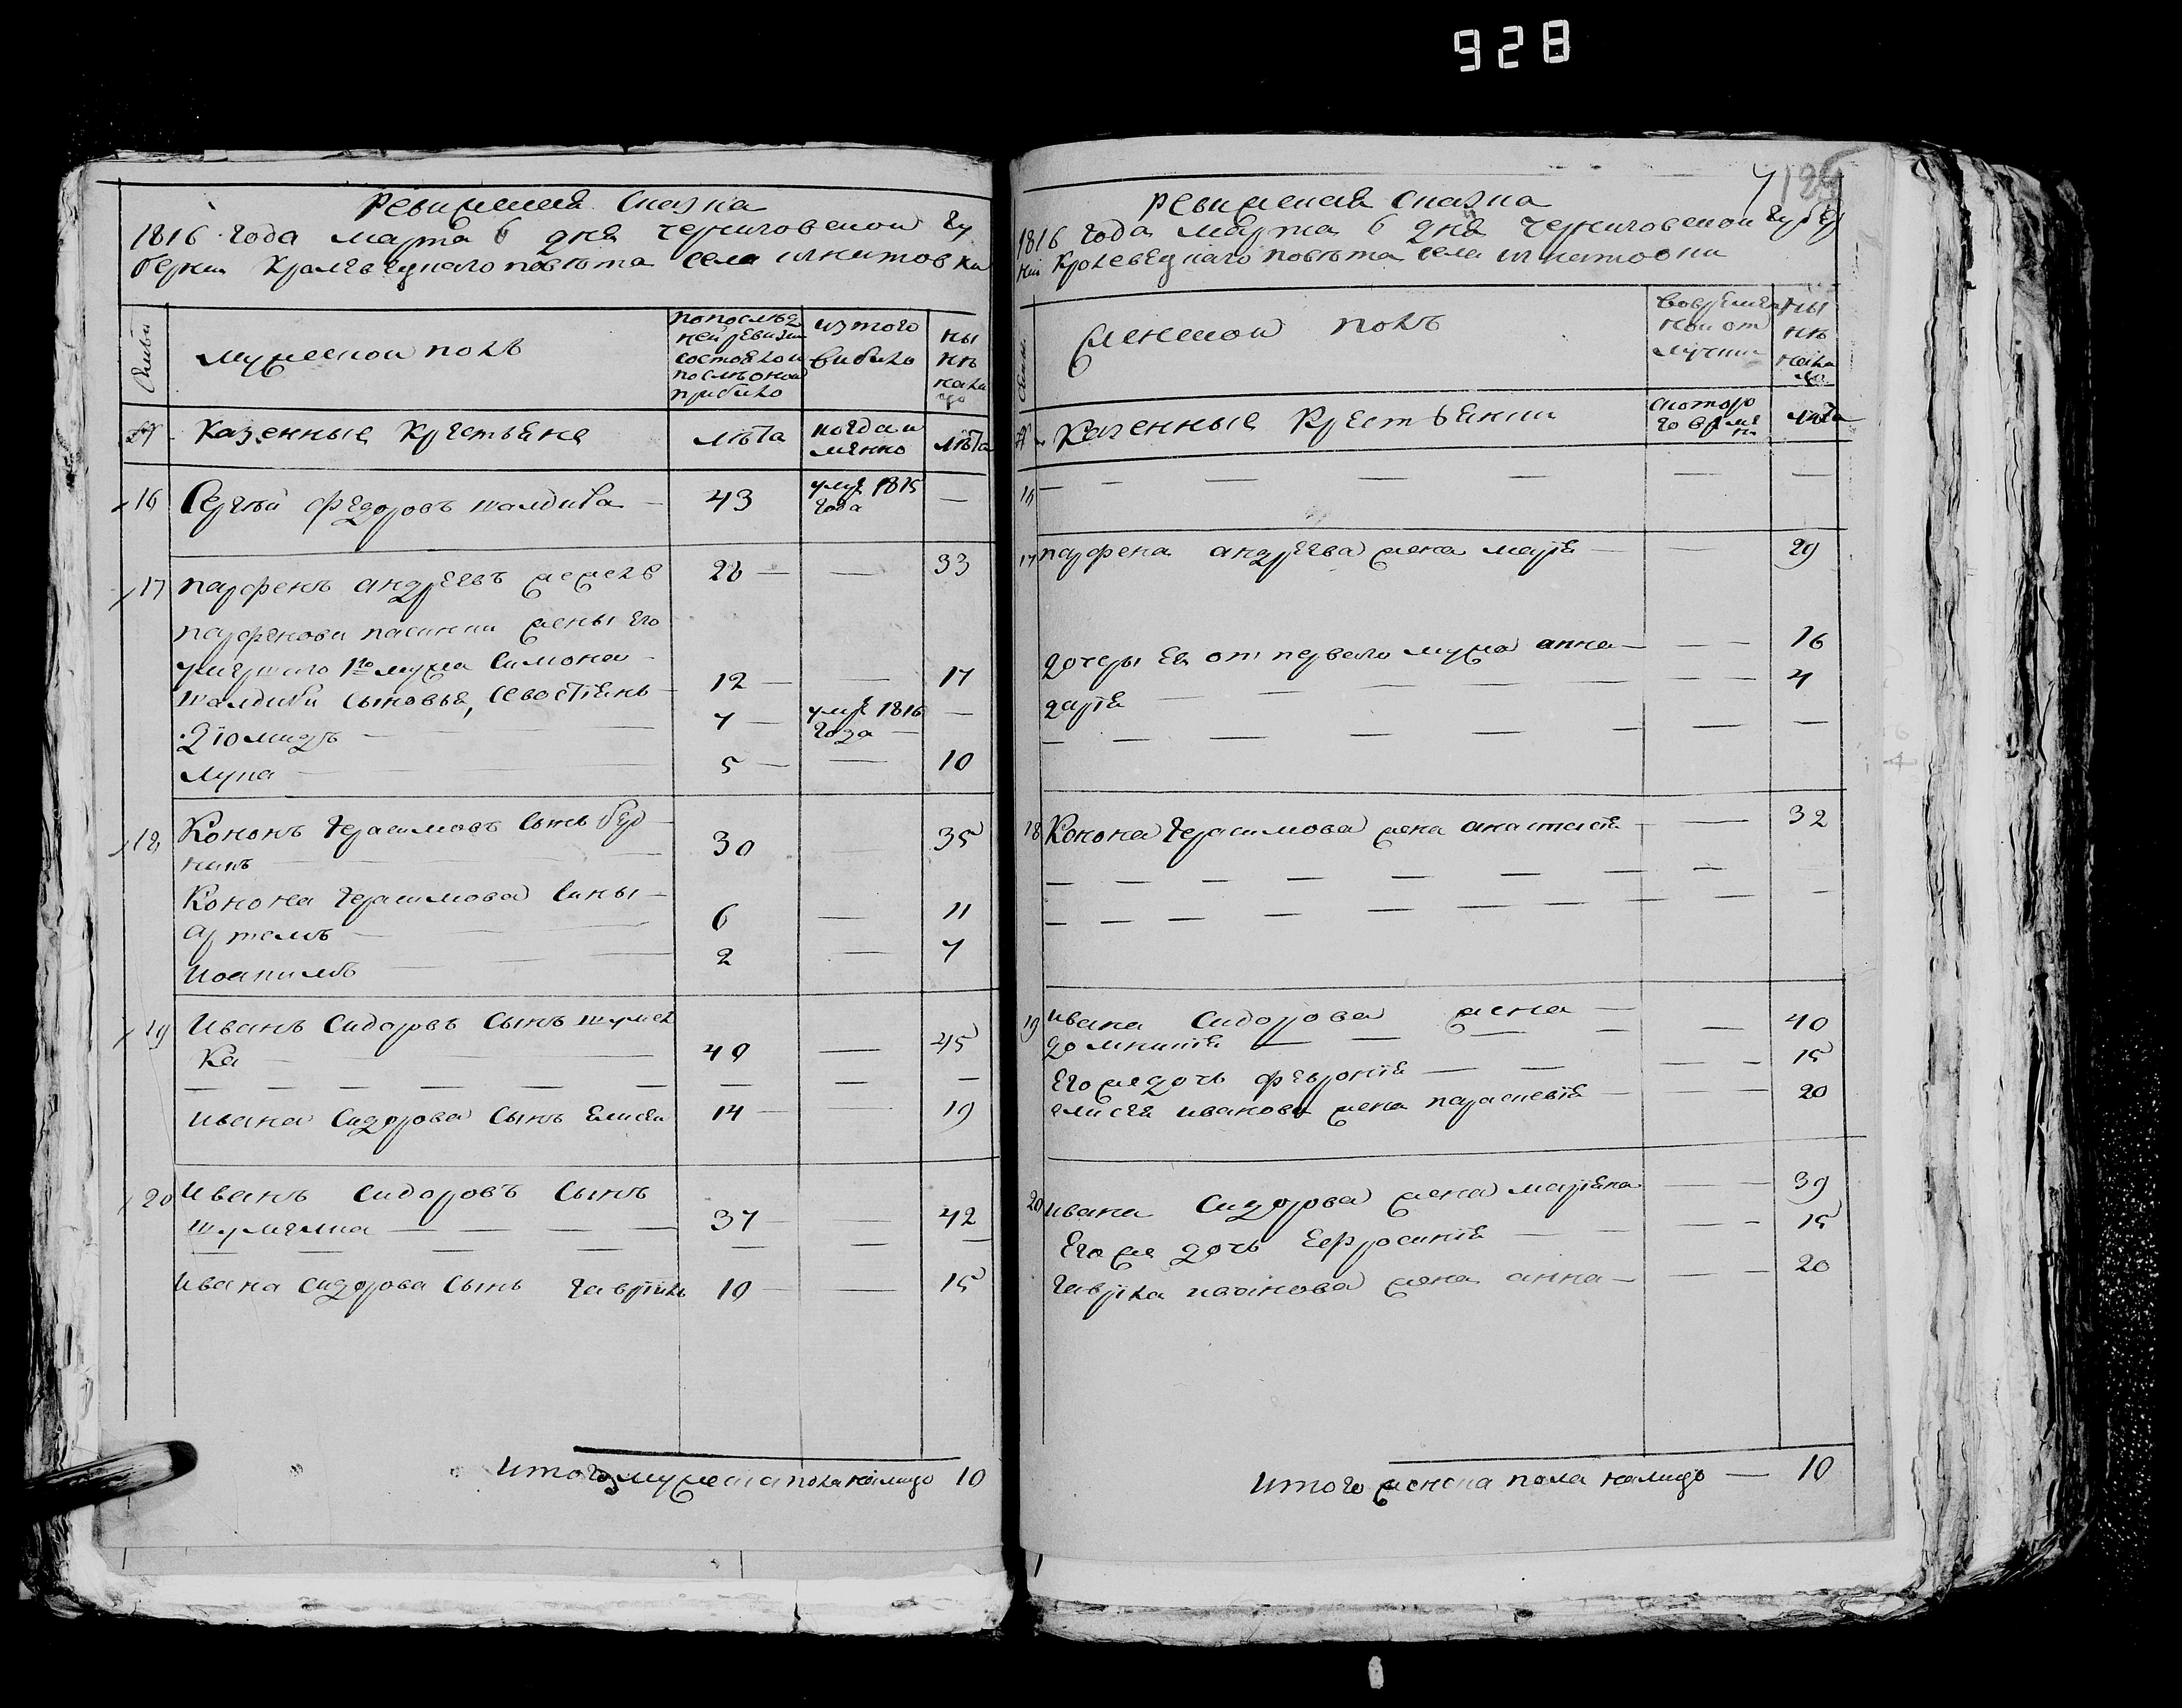 928
Ревижская Сказка
1816 года марта 6 дня черниговской гу
бернии Кролевецкаго повѣта села
мужеской полъ
попослѣд
ней ревизіи
состояло и
послѣ оной
прибило
изтого
вибило
ны
нѣ
нали
цо
Казенные Крестьяне
лѣта
когда и
мянно
лѣта
16 Сергѣй Федоровъ шалдиба — 43 умре 1815 —
года
17 парфенъ андреевъ 28 — — 33
парфенови пасинки жены его
умершаго 1го мужа Симона —
шалдиби сыновья, Севостіянъ — 12 — — 17
Діомидъ — 7 — умре 1816 —
года —
лупа — 5 — — 10
18 Кононъ герасимовъ сынъ
30 35
Конона герасимова сины —
артемъ — 6 — 11
иоакимъ — 2 — 7
19 Иванъ Сидоровъ Сынъ шумей
ка — 40 — 45
— — — — — — — — —
ивана Сидорова Сынъ Елисей 14 — 19
20 Иванъ Сидоровъ Сынъ
37 — — 42
— — — — — — — —
ивана сидорова сынъ гаврііла 10 — — 15
Итого мужеска пола налицо 10
7
ревижская сказка
1816 года марта 6 дня черниговской губер
ніи Кролевецкаго повѣта села
женской полъ
вовремен
ной от
лучки
ны
нѣ
нали
цо
Казенные Крестьянки
скоторо
го время
ни
лѣта
16 — — — — — — — —
17 парфена андреева жена марія — — 29
дочеры Ея от перваго мужа анна — — — 16
дарія — — — — — — 4
— — — — — — — —
18 Конона герасимова жена анастасія — — 32
— — — — — — — —
— — — — — — — — — —
19 ивана Сидорова жена —
домникія — — — — — 40
Его же дочь февронія — — — — 15
елисея иванова жена параскевія — — — 20
20 ивана Сидорова жена маріяна — — 39
Его же дочь Ефросинія — — — — 15
гавріла иванова жена анна — — — 20
Итого женска пола налицо — 10